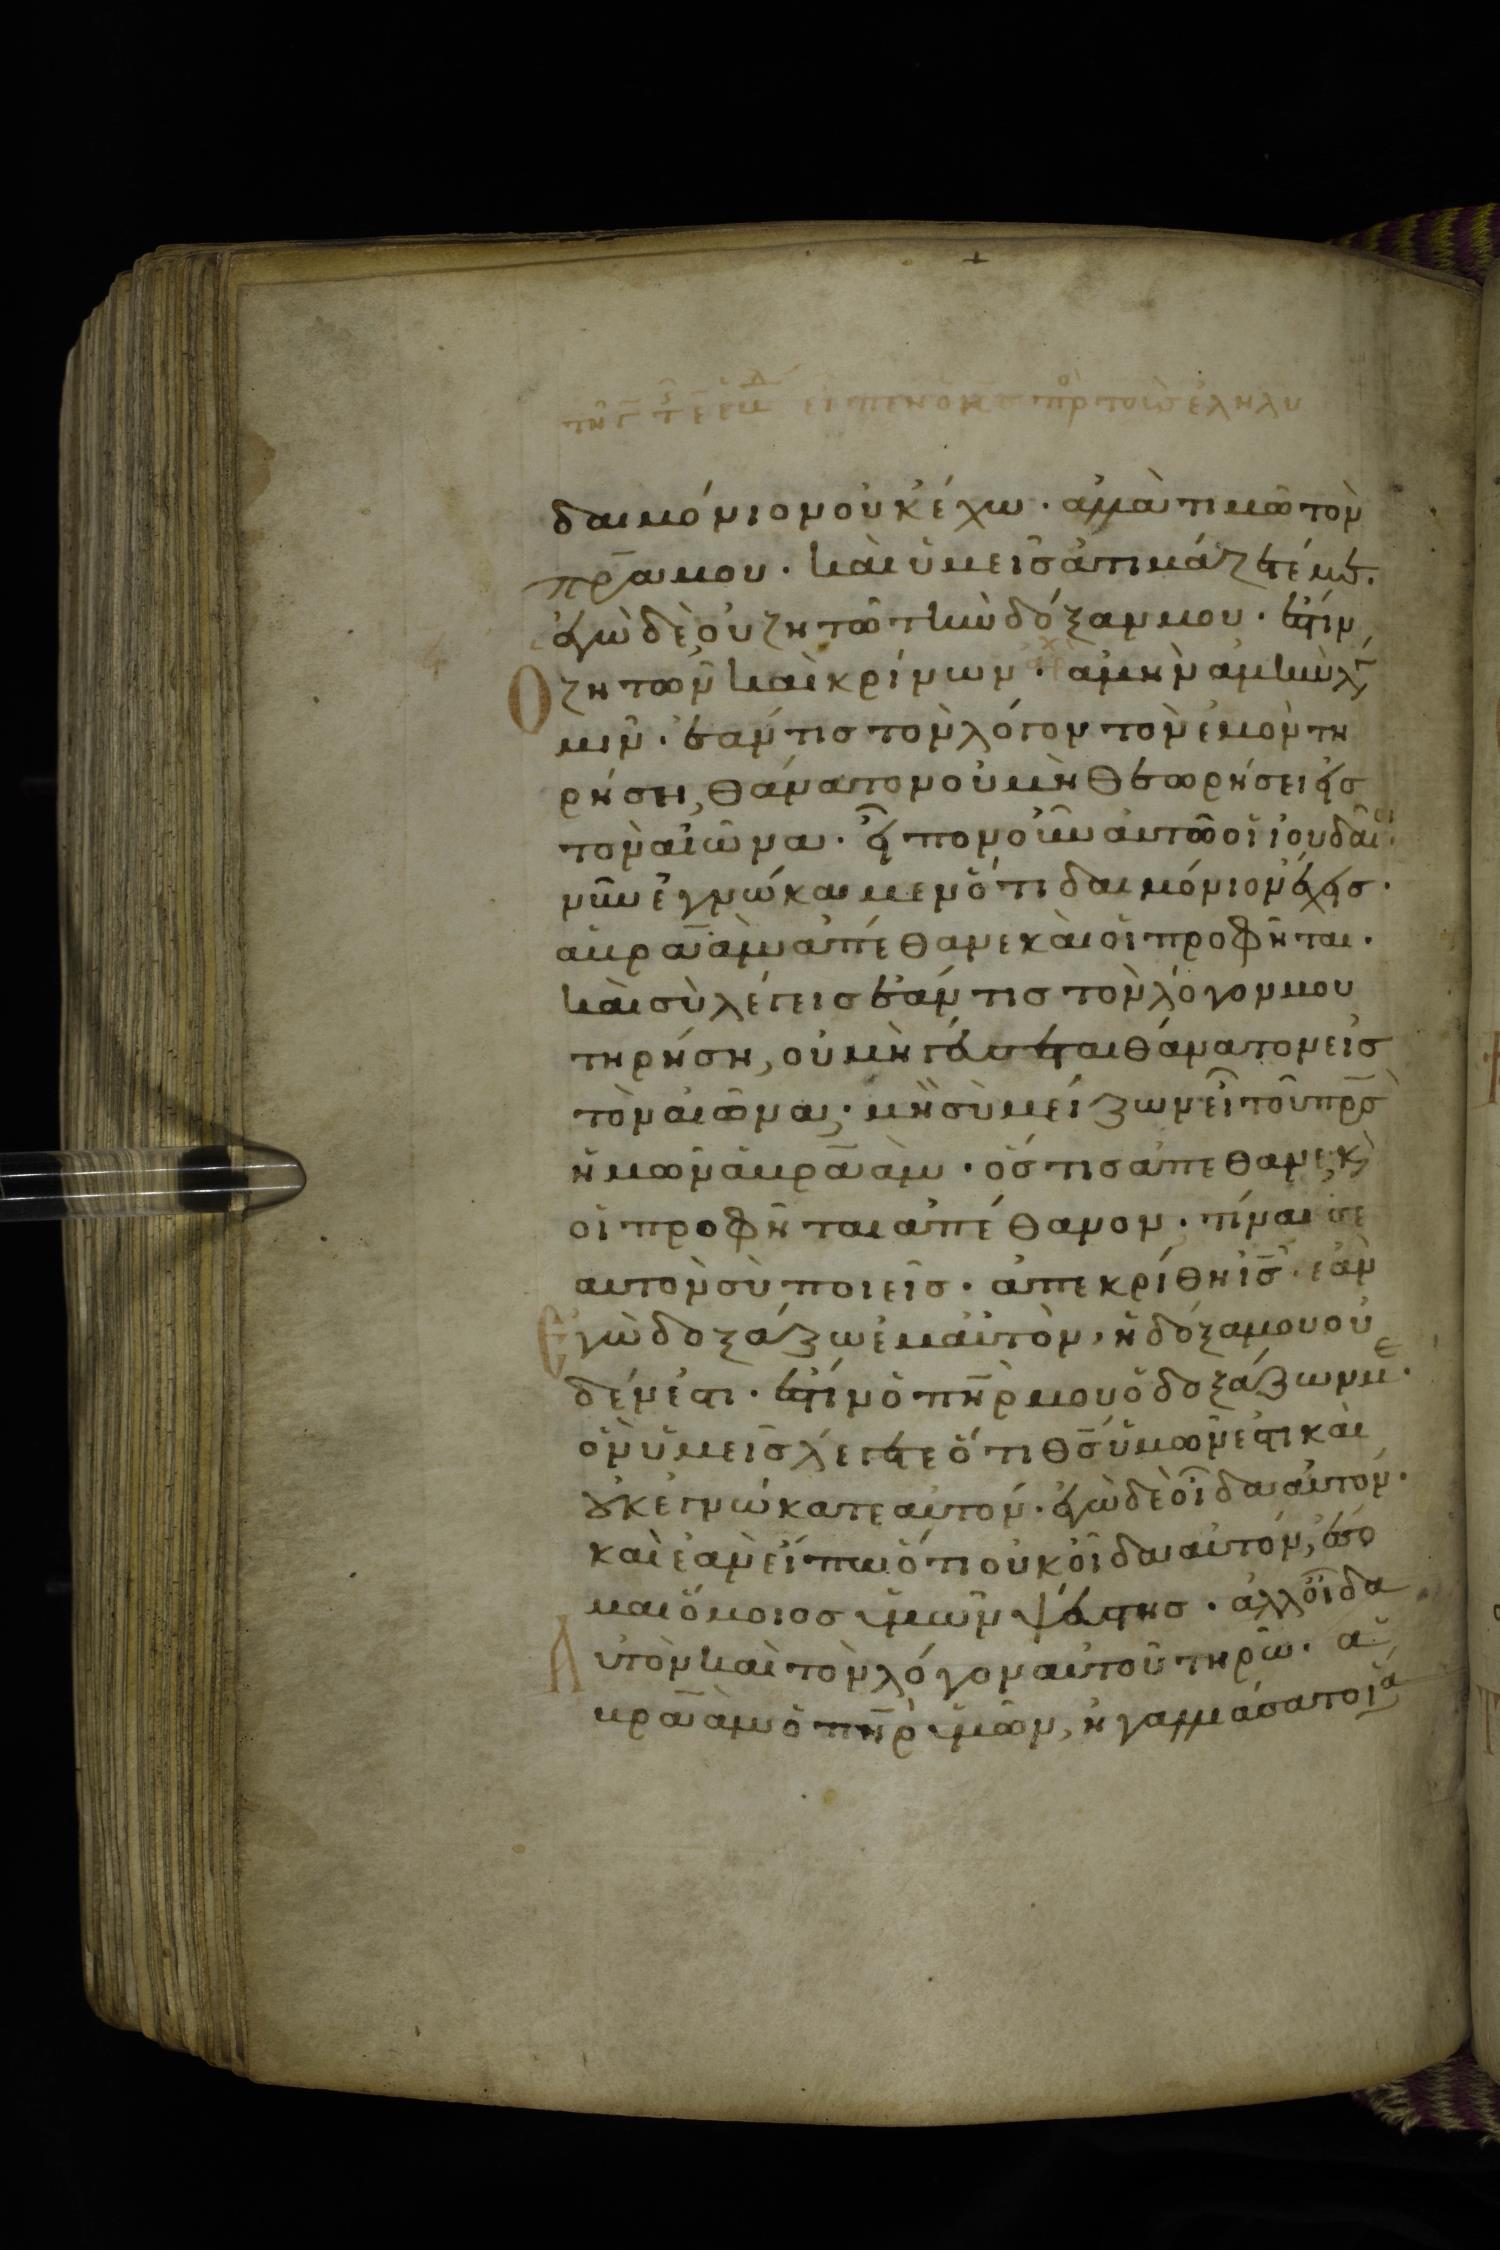 εἶπεν ὁ κς πρ τοὺσ ἐληλυ
δαιμόνιον οὐκ ἔχω · ἀλλὰ τιμῶ τὸν
πρ̅α μου · καὶ ὑμεῖσ ἀτιμάζετέ με.
ἐγὼ δὲ οὐ ζητῶ τὴν δόξαν μου · ἔστιν
ὁ ζητῶν καὶ κρίνων · ἀμὴν ἀμὴν λ
μῖν · ἐάν τισ τὸν λόγον τὸν ἐμὸν τη
ρήσει, θάνατον οὐ μὴ θεωρήσει εἰσ
τὸν αἰῶνα · εἶπον οὖν αὐτῶ οἱ ἰουδαῖοι·
νῦν ἐγνώκαμεν ὅτι δαιμόνιον ἔχεισ ·
ἀβραὰμ ἀπέθανε καὶ οἱ προφῆται ·
καὶ σὺ λέγεισ ἐάν τισ τὸν λόγον μου
τηρήση, οὐ μὴ γεύσεται θάνατον εἰσ
τὸν αἰῶνα · μὴ σὺ μείζων εἶ τοῦ πρ̅σ
ἡμῶν ἀβραὰμ · ὅστισ ἀπέθανε, κ̀
οἱ προφῆται ἀπέθανον · τίνα σε
αυτὸν σὺ ποιεῖσ · ἀπεκρίθη ἰ̅σ · ἐὰν
ἐγὼ δοξάζω ἐμαυτὸν, ἡ δόξα μου οὐ
δέν ἐστι · ἔστιν ὁ πη̅ρ μου ὁ δοξάζων με ·
ὃν ὑμεῖσ λέγετε ὅτι θ̅σ ὑμῶν ἐστι καὶ
οὐκ ἐγνώκατε αὐτόν · ἐγὼ δὲ οἶδα αὐτόν ·
καὶ ἐὰν εἴπω ὅτι οὐκ οἶδα αὐτόν, ἔσο
μαι ὅμοιοσ ὑμῶν ψεύστησ · ἀλλ οἶδα
αὐτὸν καὶ τὸν λόγον αὐτοῦ τηρῶ · ἀ
βραὰμ ὁ πη̅ρ ὑμῶν, ἠγαλλιάσατο ἵνα